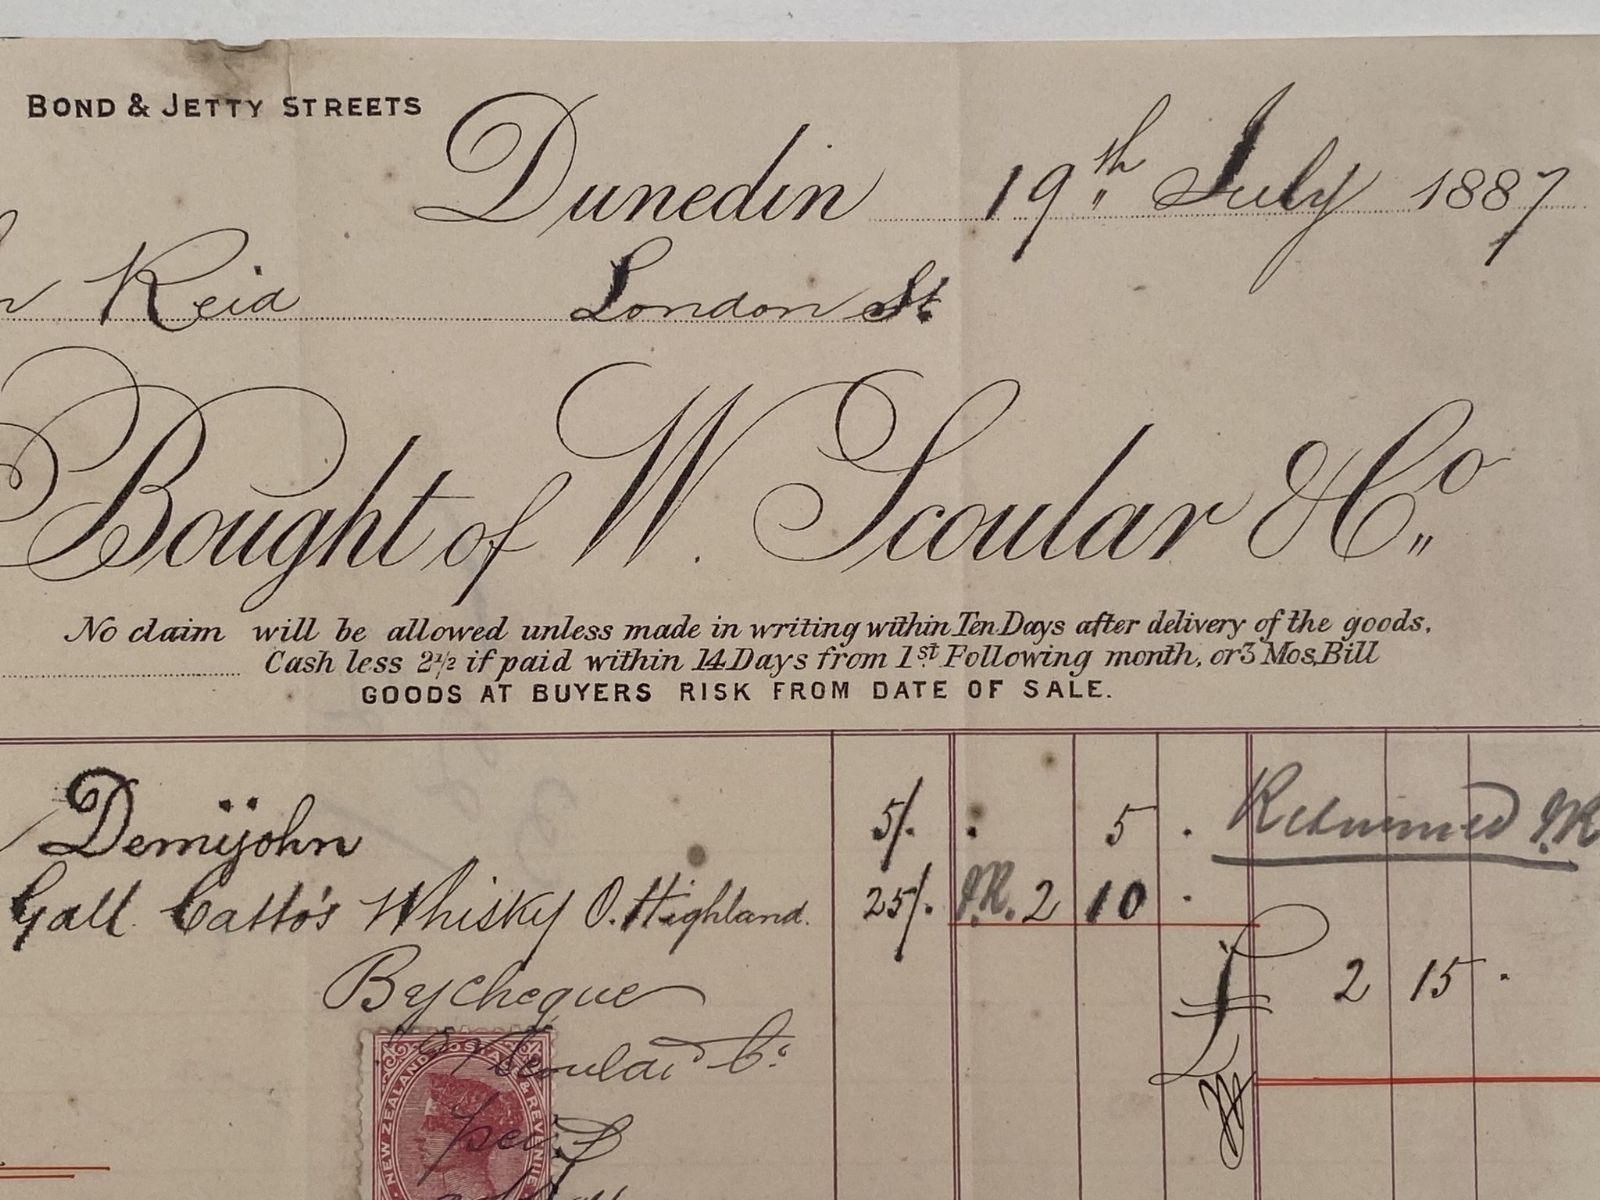 BOND & JETTY STREETS
Dunedin 19th July 1887
Reid London St.
Bought of W. Scoular & Co
No claim will be allowed unless made in writing within Ten Days after delivery of the goods,
Cash less 2½ if paid within 14 Days from 1st Following month, or 3 Mos, Bill
GOODS AT BUYERS RISK FROM DATE OF SALE.
Demijohn 5/. . 5 . Returned J.R
Gall Catto's Whisky O. Highland. 25/. J.R. 2 10 .
£ 2 15 .
By cheque
Scoular Co
NEW ZEALAND POSTAGE & REVENUE
per